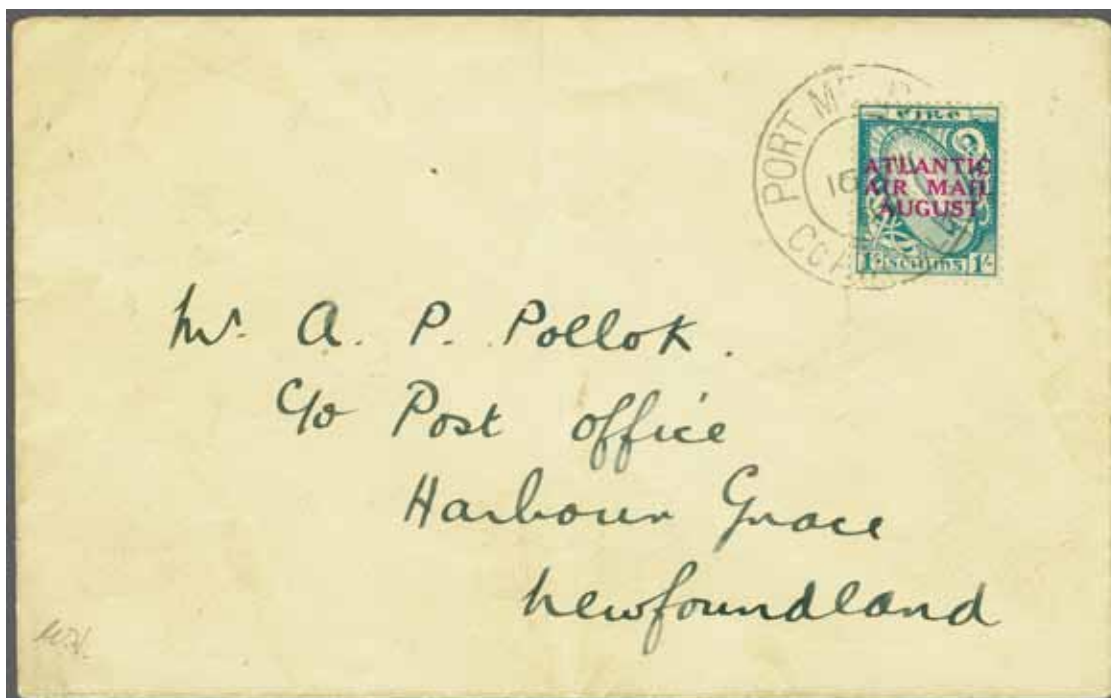 PORT
16
éire
ATLANTIC
AIR MAIL
AUGUST
1 scilling 1/-
Mr. A. P. Pollok.
c/o Post office
Harbour Grace
Newfoundland